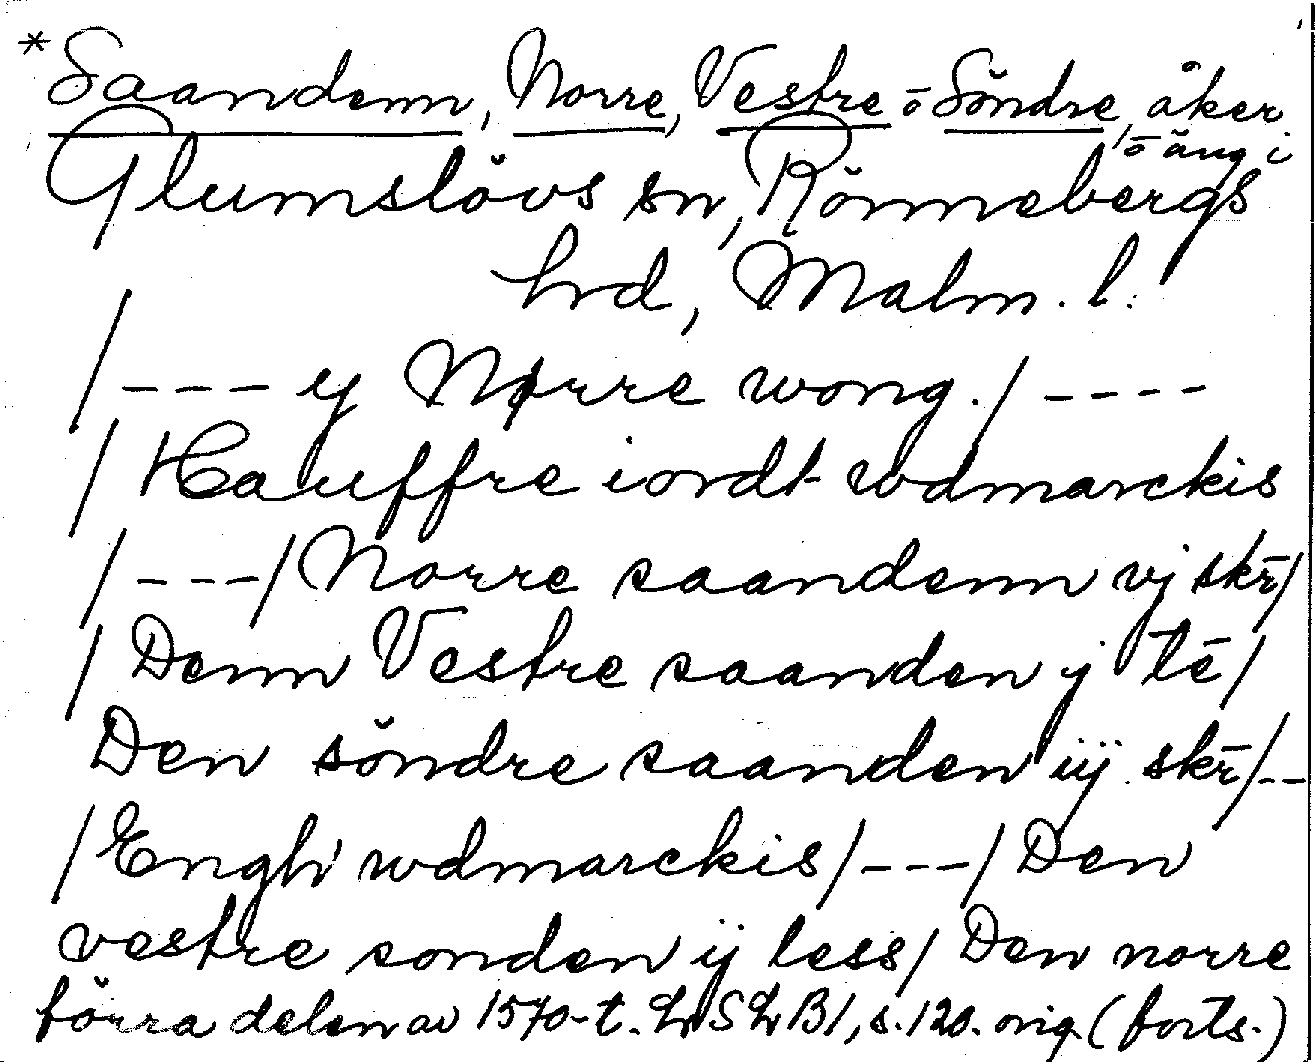 *Saandenn, Norre, Vestre o Söndre, åker
o äng i
Glumslövs sn, Rönnebergs
hrd, Malm. l.
/---y Nørre wong./----
/Hauffre iordt wdmarckis
/---/Norre saandenn vj skr̄/
/Denn Vestre saanden j tē/
Den söndre saanden iij skr̄/--
/Engh wdmarckis/---/Den
vestre sonden ij less/Den norre
förra delen av 1570-t. s.120. orig. (forts.)